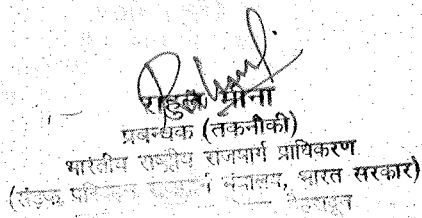 राहुल मीना
प्रबन्धक (तकनीकी)
भारतीय राष्ट्रीय राजमार्ग प्राधिकरण
(सड़क परिवहन मंत्रालय, भारत सरकार)
देहरादून